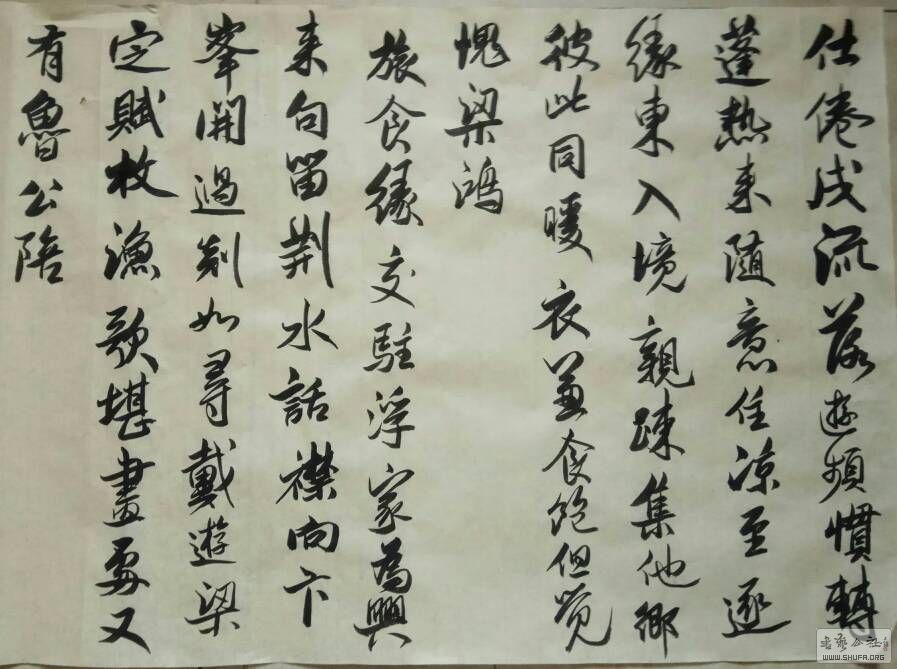 仕倦成流落遊頻慣轉
蓬熱来隨意住凉至逐
緣東入境親疎集他鄉
彼此同暖衣兼食飽但覺
愧梁鴻
旅食緣交駐浮家為興
来句留荆水話襟向卞
峯開過剡如尋戴遊梁
定賦枚漁歌堪畫處又
有魯公陪
書藝公社
WWW.SHUFA.ORG